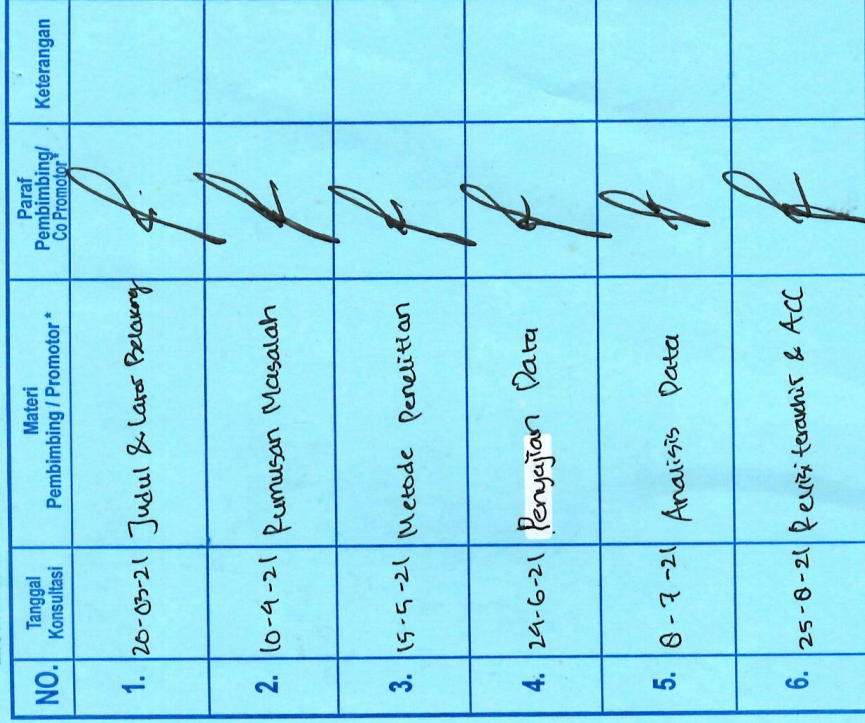 NO. Tanggal Konsultasi Materi Pembimbing / Promotor * Paraf Pembimbing/ Co Promotor* Keterangan
1. 20-03-21 Judul & Latar Belakang
2. 10-4-21 Rumusan Masalah
3. 15-5-21 Metode Penelitian
4. 29-6-21 Penyajian Data
5. 8-7-21 Analisis Data
6. 25-8-21 Revisi terakhir & ACC